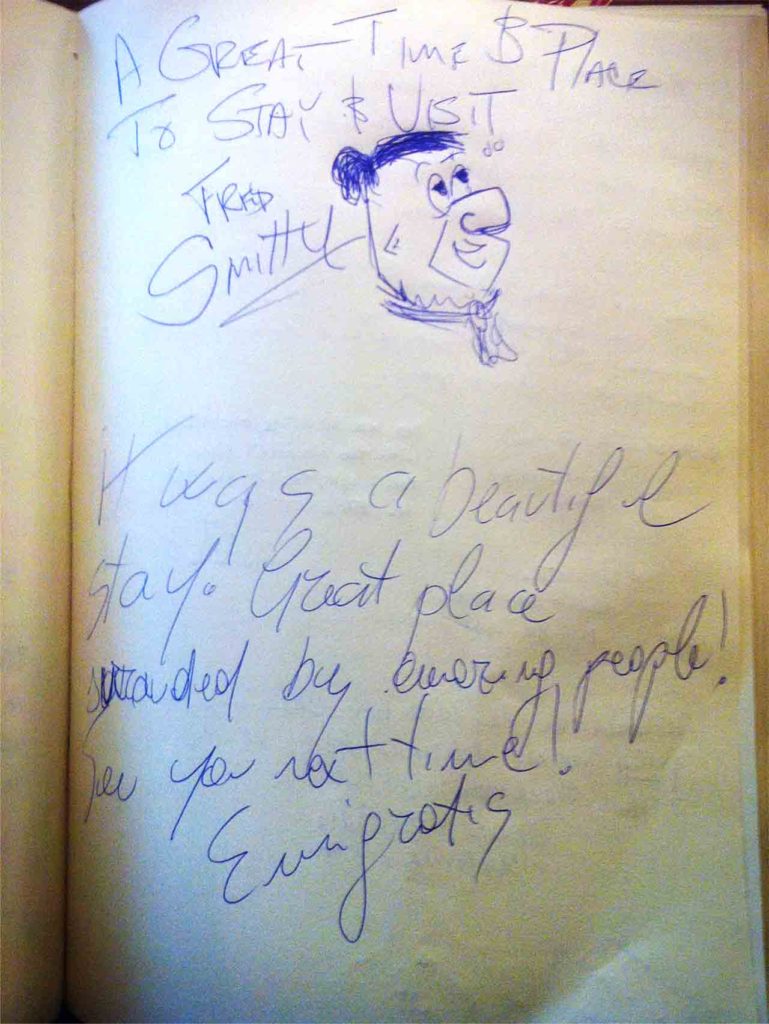 A GREAT TIME & PLACE
TO STAY & VISIT
FRED
SMITTY
It was a beautiful
stay! Great place
surrouded by amazing people!
See you next time!